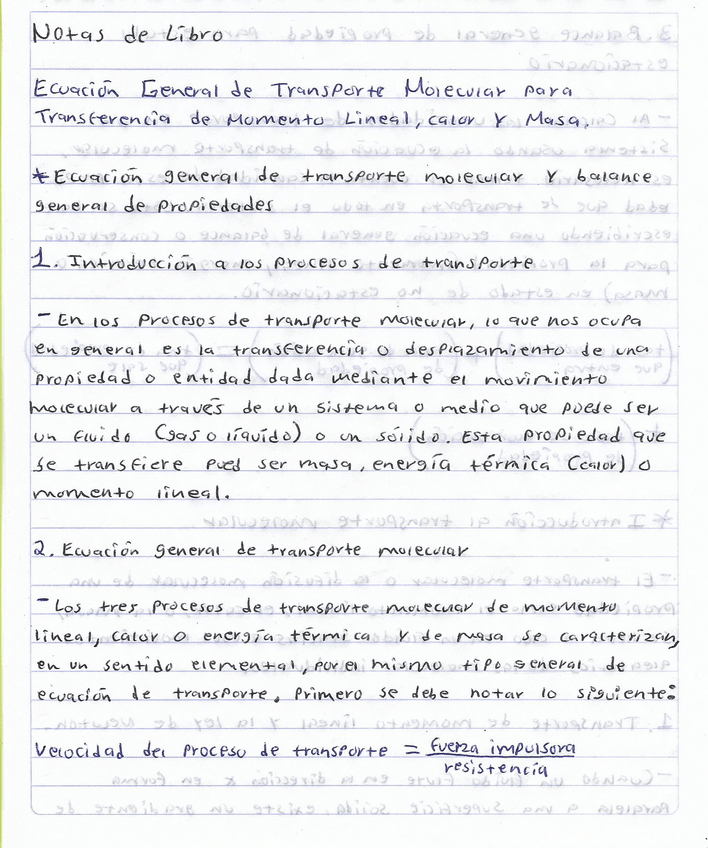 Notas de Libro
Ecuación General de Transporte Molecular para
Transferencia de Momento Lineal, calor y Masa.
*Ecuación general de transporte molecular y balance
general de propiedades
1. Introducción a los procesos de transporte
- En los procesos de transporte molecular, lo que nos ocupa
en general es la transferencia o desplazamiento de una
propiedad o entidad dada mediante el movimiento
molecular a través de un sistema o medio que puede ser
un fluido (gas o líquido) o un sólido. Esta propiedad que
se transfiere pued ser masa, energía térmica (calor) o
momento lineal.
2. Ecuación general de transporte molecular
- Los tres procesos de transporte molecular de momento
lineal, calor o energía térmica y de masa se caracterizan,
en un sentido elemental, por el mismo tipo general de
ecuación de transporte. Primero se debe notar lo siguiente:
Velocidad del proceso de transporte = fuerza impulsora
resistencia